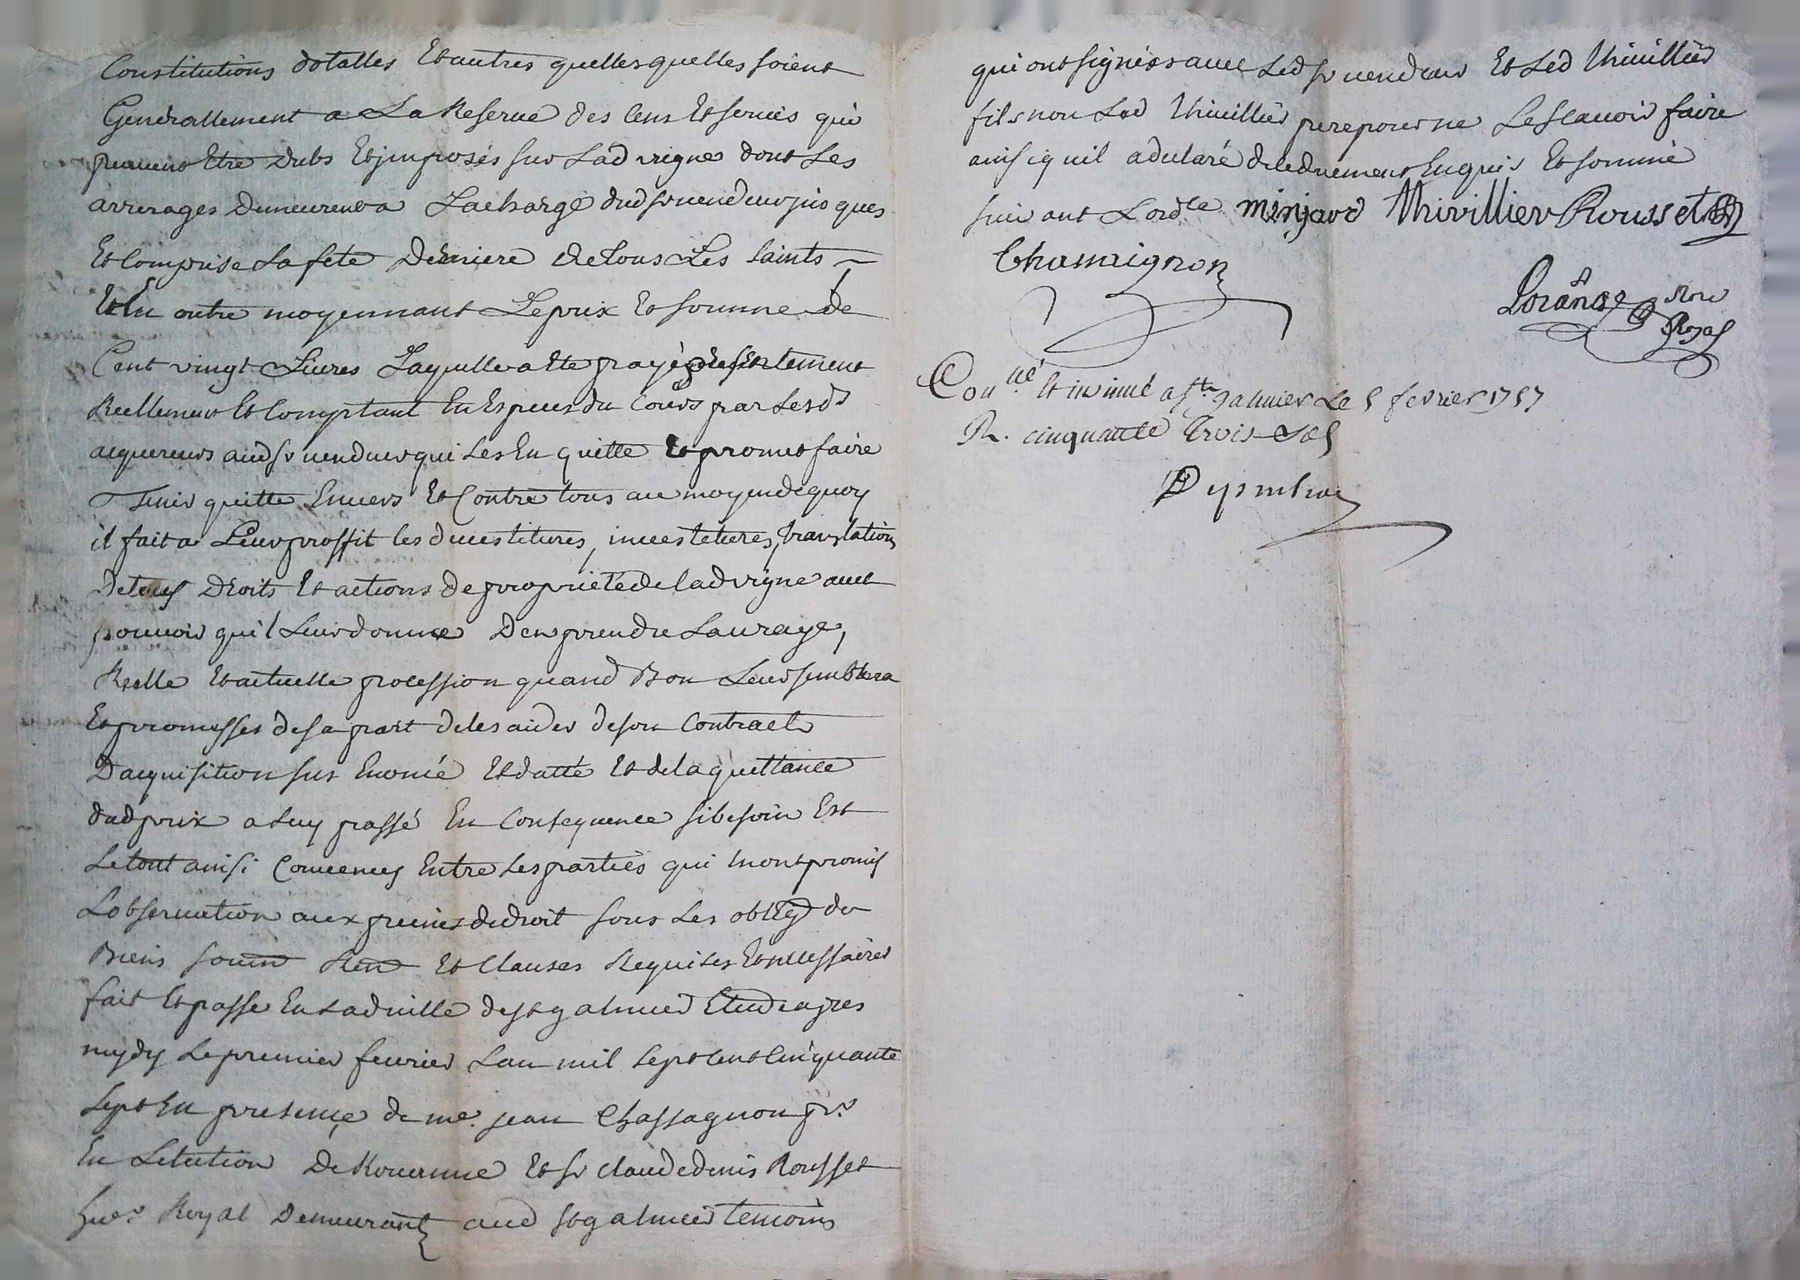 Constitutions dotalles Et autres quelles quelles soient
Generallement a La Reserve des Cens Et servis qui
peuvent Etre dubs Et jmposés sur Lad vigne dont Les
arrerages Demeurent a La charge dud sr vendeur jusques
Et Comprise La fete Derniere de tous Les saints
Et En outre moyennant Le prix Et somme de
Cent vingt Livres Laquelle a Eté payée presentement
Reellement Et Comptant En Especes du Cours par Lesds
acquereurs aud sr vendeur qui Les En quitte Et promet faire
Tenir quitte Envers Et Contre tous au moyen de quoy
il fait a Leur proffit les devestitures, investitures, translations
De tous Droits Et actions de propriété de lad vigne avec
pouvoir qu'il Leur donne D'en prendre La vraye,
Reelle Et actuelle possession quand Bon Leur semblera
Et promesses de sa part de les aider de son Contract
D'acquisition sus Enoncé Et datté Et de la quittance
dud prix a Luy passé En Consequence si besoin Est
Le tout ainsi Convenus Entre Les parties qui En ont promis
L'observation aux peines de droit sous Les oblig de
Biens soum Ren Et Clauses Requises Et necessaires
fait Et passé En Lad ville de st galmier Etude apres
mydy Le premier fevrier L'an mil sept Cent Cinquante
sept En presence de me. jean Chassagnon pr.
En L'election De Rouanne Et sr claude denis Rousset
huer. Royal Demeurant aud st galmier temoins
qui ont signés avec Led sr vendeur Et Led Thivillier
fils non Led Thivillier pere pour ne Le scavoir faire
ainsi qu'il a declaré de ce duement Enquis Et sommé
suivant L'ordce minjard Thivillier Rousset
Chassaignon
Nore
Royal
Conllé Et insinué a St. galmier Le 5 fevrier 1757
R. cinquante Trois sols